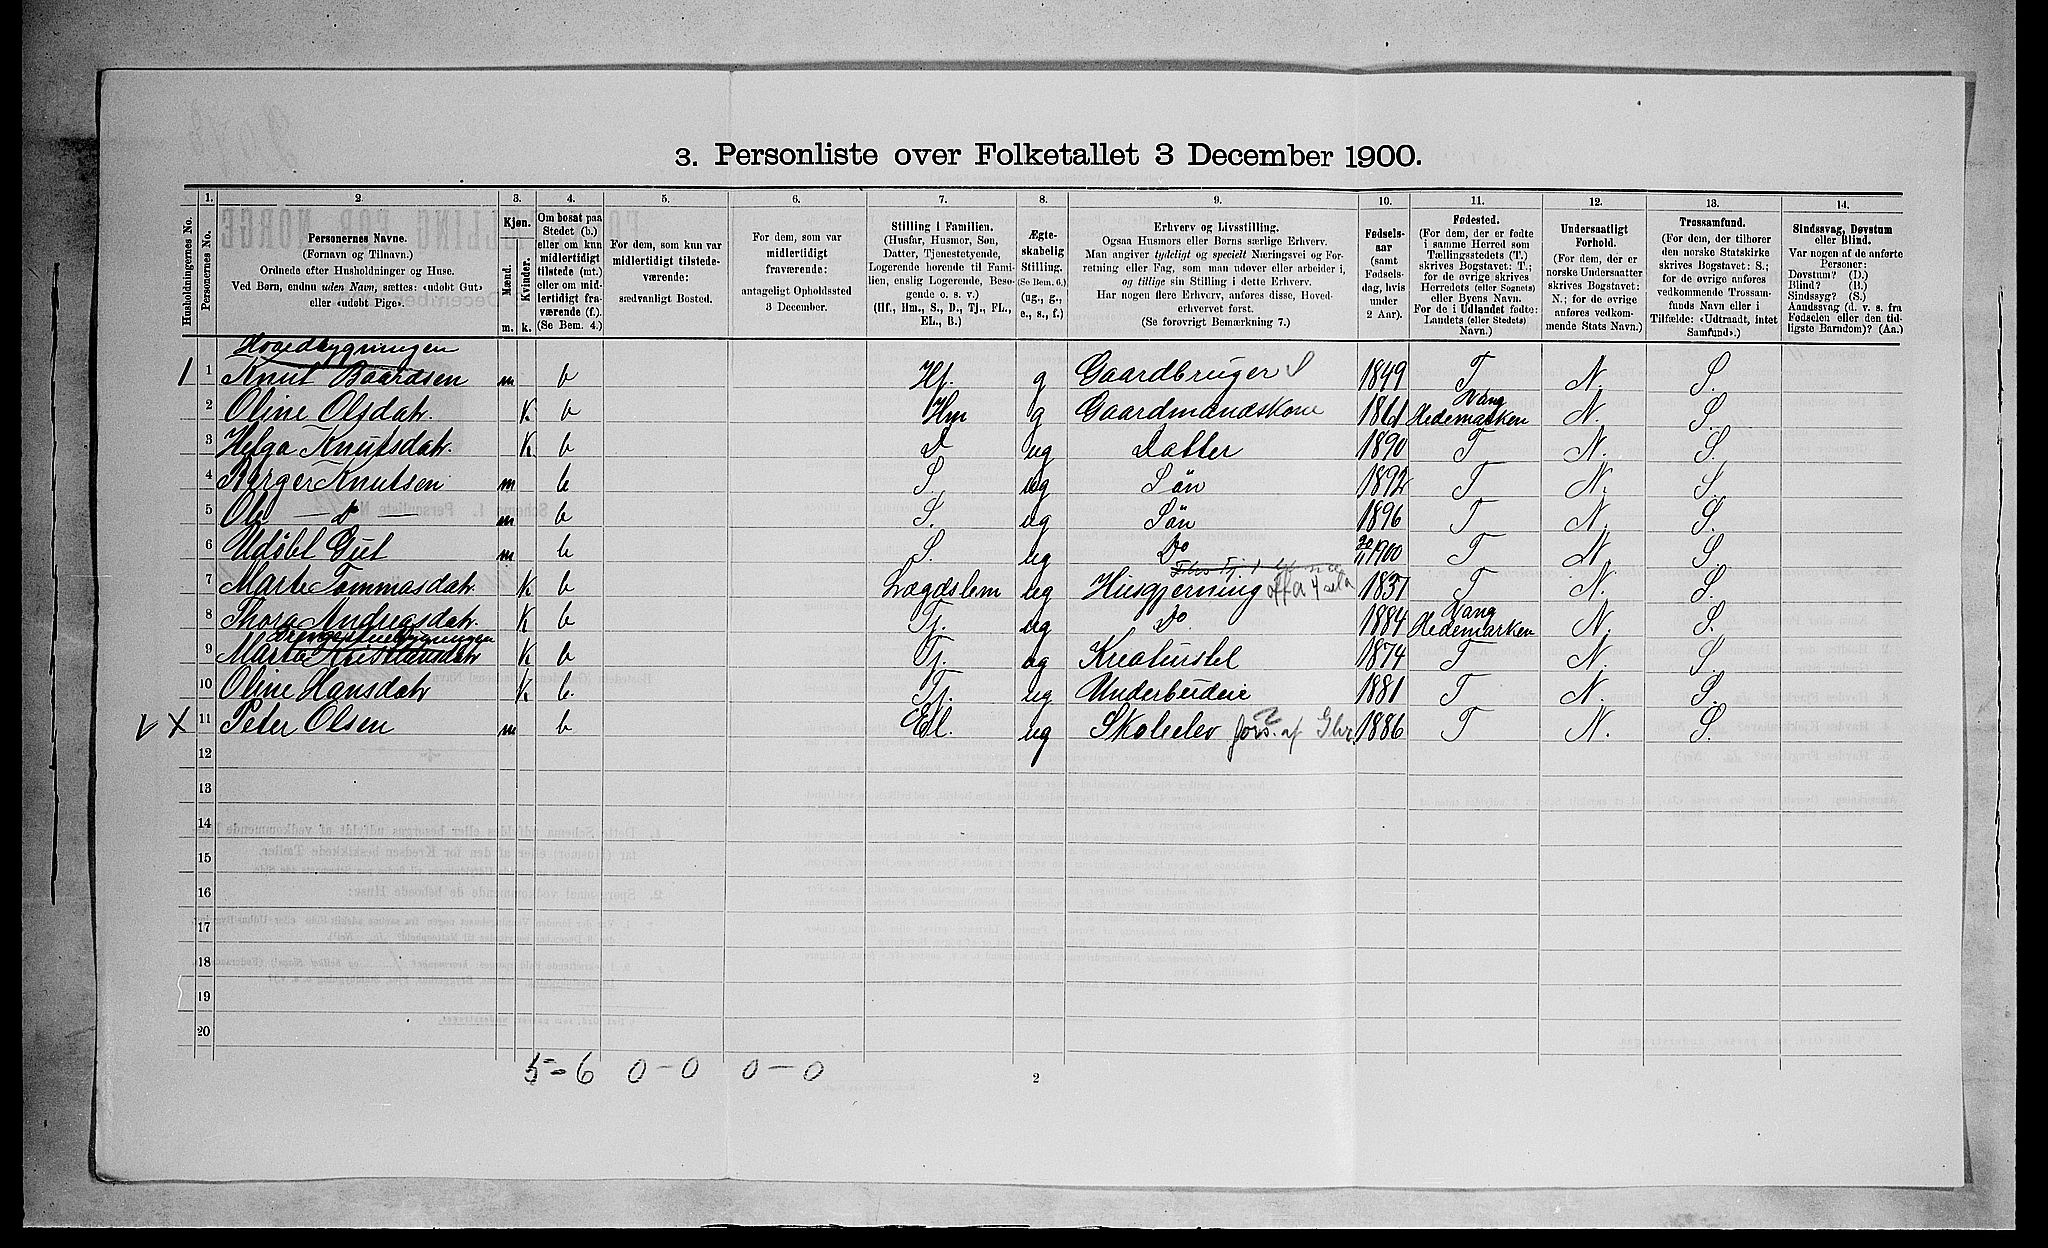 3. Personliste over Folketallet 3 December 1900.
Husholdningernes No.
1. Personernes No.
2. Personernes Navne.
(Fornavn og Tilnavn.)
Ordnede efter Husholdninger og Huse.
Ved Børn, endnu uden Navn, sættes: «udøbt Gut»
eller «udøbt Pige».
3. Kjøn.
Mænd. m.
Kvinder. k.
4. Om bosat paa
Stedet (b.)
eller om kun
midlertidigt
tilstede (mt.)
eller om mid-
lertidigt fra-
værende (f.).
(Se Bem. 4.)
5. For dem, som kun var
midlertidigt tilstede-
værende:
sædvanligt Bosted.
6. For dem, som var
midlertidigt
fraværende:
antageligt Opholdssted
3 December.
7. Stilling i Familien.
(Husfar, Husmor, Søn,
Datter, Tjenestetyende,
Logerende hørende til Fami-
lien, enslig Logerende, Besø-
gende o. s. v.)
(Hf., Hm., S., D., Tj., FL.,
EL., B.)
8. Ægte-
skabelig
Stilling.
(Se Bem. 6.)
(ug., g.,
e., s., f.)
9. Erhverv og Livsstilling.
Ogsaa Husmors eller Børns særlige Erhverv.
Man angiver tydeligt og specielt Næringsvei og For-
retning eller Fag, som man udøver eller arbeider i,
og tillige sin Stilling i dette Erhverv.
Har nogen flere Erhverv, anføres disse, Hoved-
erhvervet først.
(Se forøvrigt Bemærkning 7.)
10. Fødsels-
aar
(samt
Fødsels-
dag, hvis
under
2 Aar).
11. Fødested.
(For dem, der er fødte
i samme Herred som
Tællingsstedets (T.)
skrives Bogstavet: T.;
for de øvrige skrives
Herredets (eller Sognets)
eller Byens Navn.
For de i Udlandet fødte:
Landets (eller Stedets)
Navn.)
12. Undersaatligt
Forhold.
(For dem, der er
norske Undersaatter
skrives Bogstavet:
N.; for de øvrige
anføres vedkom-
mende Stats Navn.)
13. Trossamfund.
(For dem, der tilhører
den norske Statskirke
skrives Bogstavet: S.;
for de øvrige anføres
vedkommende Trossam-
funds Navn eller i
Tilfælde: «Udtraadt, intet
Samfund».)
14. Sindssvag, Døvstum
eller Blind.
Var nogen af de anførte
Personer:
Døvstum? (D.)
Blind? (B.)
Sindssyg? (S.)
Aandssvag (d. v. s. fra
Fødselen eller den tid-
ligste Barndom)? (Aa.)
Hovedbygningen
1 1 Knut Baardsen m b Hf. g Gaardbruger S 1849 T N. S.
2 Oline Olsdatr. K b Hm g Gaardmandskone 1861 Vang Hedemarken N. S.
3 Helga Knutsdatr. K b D ug Datter 1890 T N. S.
4 Birger Knutsen m b S. ug Søn 1892 T N. S.
5 Ole — Do — m b S. ug Søn 1896 T N. S.
6 Udøbt Gut m b S. ug Do 20/11 1900 T N. S.
7 Marte Tommasdatr. K b Lægdslem ug Husgjerning 1837 T N. S.
8 Thora Andreasdatr. K b Tj. ug Do 1884 Vang Hedemarken N. S.
9 Marta Kristiansdatr K b Tj. ug Kreaturstel 1874 T N. S.
10 Oline Hansdatr K b. Tj. ug Underbudeie 1881 T N. S.
v X 11 Peter Olsen m b El. ug Skoleelev fors. af 1886 T N. S.
12
13
14
15
16
17
18
19
20
5-6 0-0 0-0
2